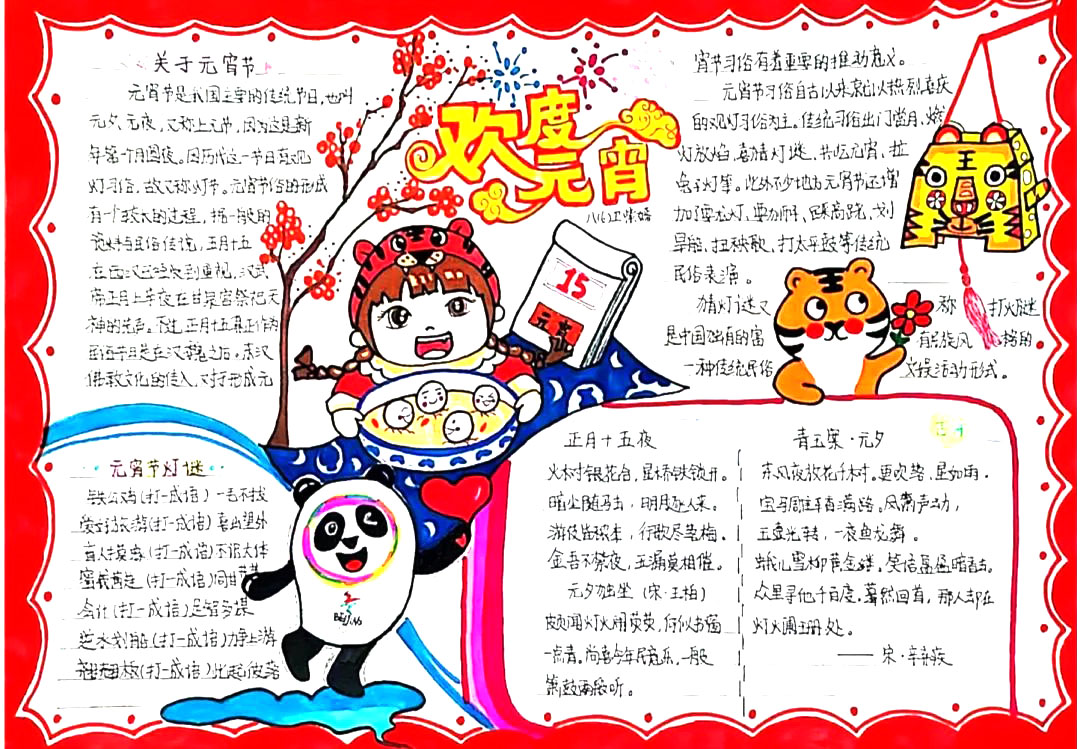 关于元宵节
元宵节是我国主要的传统节日,也叫
元夕、元夜,又称上元节,因为这是新
年第一个月圆夜。因历代这一节日有观
灯习俗,故又称灯节。元宵节俗的形成
有一个较长的过程,据一般的
资料与民俗传说,正月十五
在西汉已经受到重视,汉武
帝正月上辛夜在甘泉宫祭祀天
神的先声。不过,正月十五真正作为
是在汉魏之后。东汉
佛教文化的传入,对于形成元
宵节习俗有着重要的推动意义。
元宵节习俗自古以来就以热烈喜庆
的观灯习俗为主。传统习俗出门赏月、燃
灯放焰、喜猜灯谜、共吃元宵、拉
兔子灯等。此外不少地方元宵节还增
加了耍龙灯、耍狮子、踩高跷、划
旱船、扭秧歌、打太平鼓等传统
民俗表演。
猜灯谜又称打灯谜
是中国独有的富有民族风格的
一种传统民俗文娱活动形式。
欢度元宵
15
元宵
元宵节灯谜
铁公鸡(打一成语)一毛不拔
爱好旅游(打一成语)喜出望外
盲人摸象(打一成语)不识大体
(打一成语)同甘共苦
会计(打一成语)足智多谋
逆水划船(打一成语)力争上游
翘翘板(打一成语)此起彼落
BEIJING
正月十五夜
火树银花合,星桥铁锁开。
暗尘随马去,明月逐人来。
游伎皆秾李,行歌尽落梅。
金吾不禁夜,玉漏莫相催。
元夕独坐(宋·王柏)
颇闻灯火闹荧荧,何似书窗
一点青。尚喜今年民意乐,一般
箫鼓两般听。
青玉案·元夕
东风夜放花千树。更吹落,星如雨。
宝马雕车香满路。凤箫声动,
玉壶光转,一夜鱼龙舞。
蛾儿雪柳黄金缕。笑语盈盈暗香去。
众里寻他千百度。蓦然回首,那人却在
灯火阑珊处。
——宋·辛弃疾
王